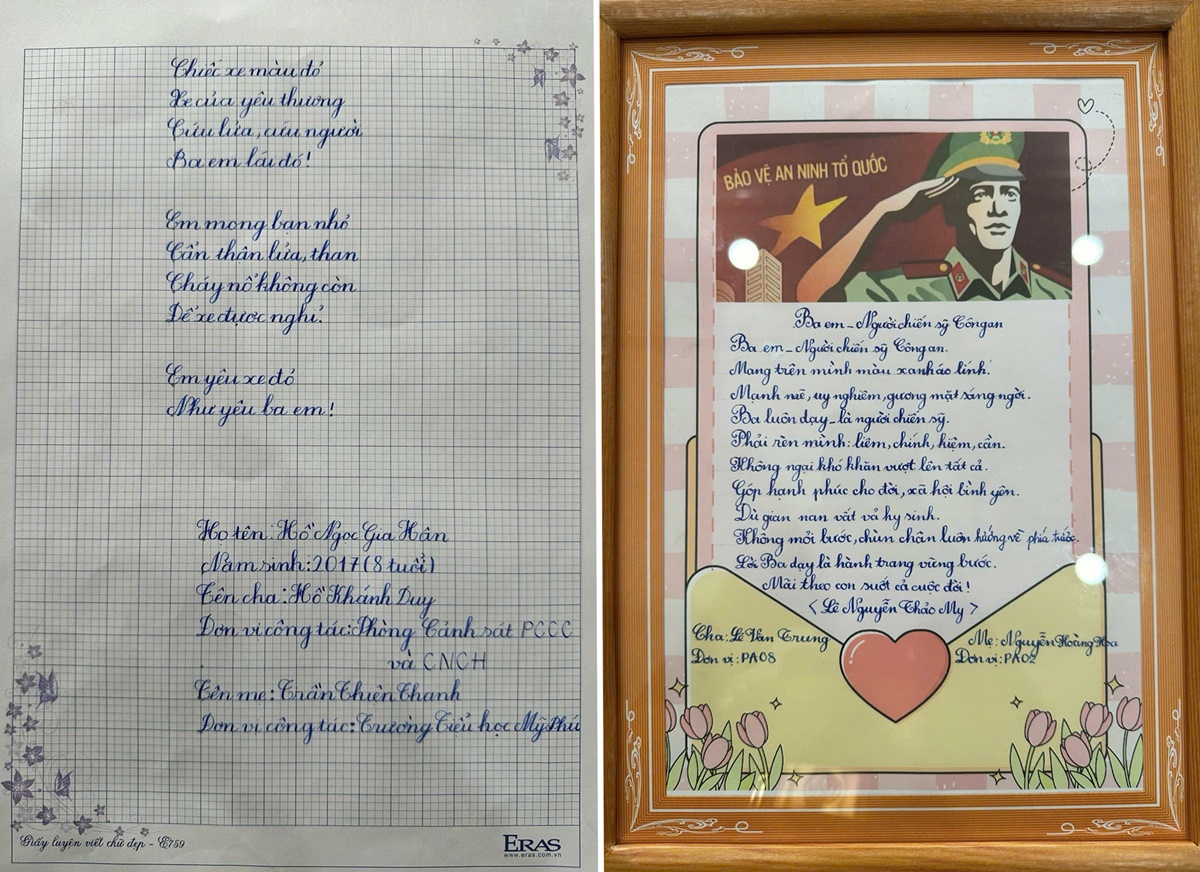 Chiếc xe màu đỏ
Xe của yêu thương
Cứu lửa, cứu người
Ba em lái đó!
Em mong bạn nhỏ
Cẩn thận lửa, than
Cháy nổ không còn
Để xe được nghỉ.
Em yêu xe đỏ
Như yêu ba em!
Họ tên: Hồ Ngọc Gia Hân
Năm sinh: 2017 (8 tuổi)
Tên cha: Hồ Khánh Duy
Đơn vị công tác: Phòng Cảnh sát PCCC
và CNCH
Tên mẹ: Trần Thiên Thanh
Đơn vị công tác: Trường Tiểu học Mỹ Phú
Giấy luyện viết chữ đẹp - E759
ERAS
www.eras.com.vn
BẢO VỆ AN NINH TỔ QUỐC
Ba em - Người chiến sỹ Công an
Ba em - Người chiến sỹ Công an.
Mang trên mình màu xanh áo lính.
Mạnh mẽ, uy nghiêm, gương mặt sáng ngời.
Ba luôn dạy - là người chiến sỹ.
Phải rèn mình: liêm, chính, kiệm, cần.
Không ngại khó khăn vượt lên tất cả.
Góp hạnh phúc cho đời, xã hội bình yên.
Dù gian nan vất vả hy sinh.
Không mỏi bước, chùn chân luôn hướng về phía trước.
Lời Ba dạy là hành trang vững bước.
Mãi theo con suốt cả cuộc đời!
< Lê Nguyễn Thảo My >
Cha: Lê Văn Trung
Đơn vị: PA08
Mẹ: Nguyễn Hoàng Hoa
Đơn vị: PA02